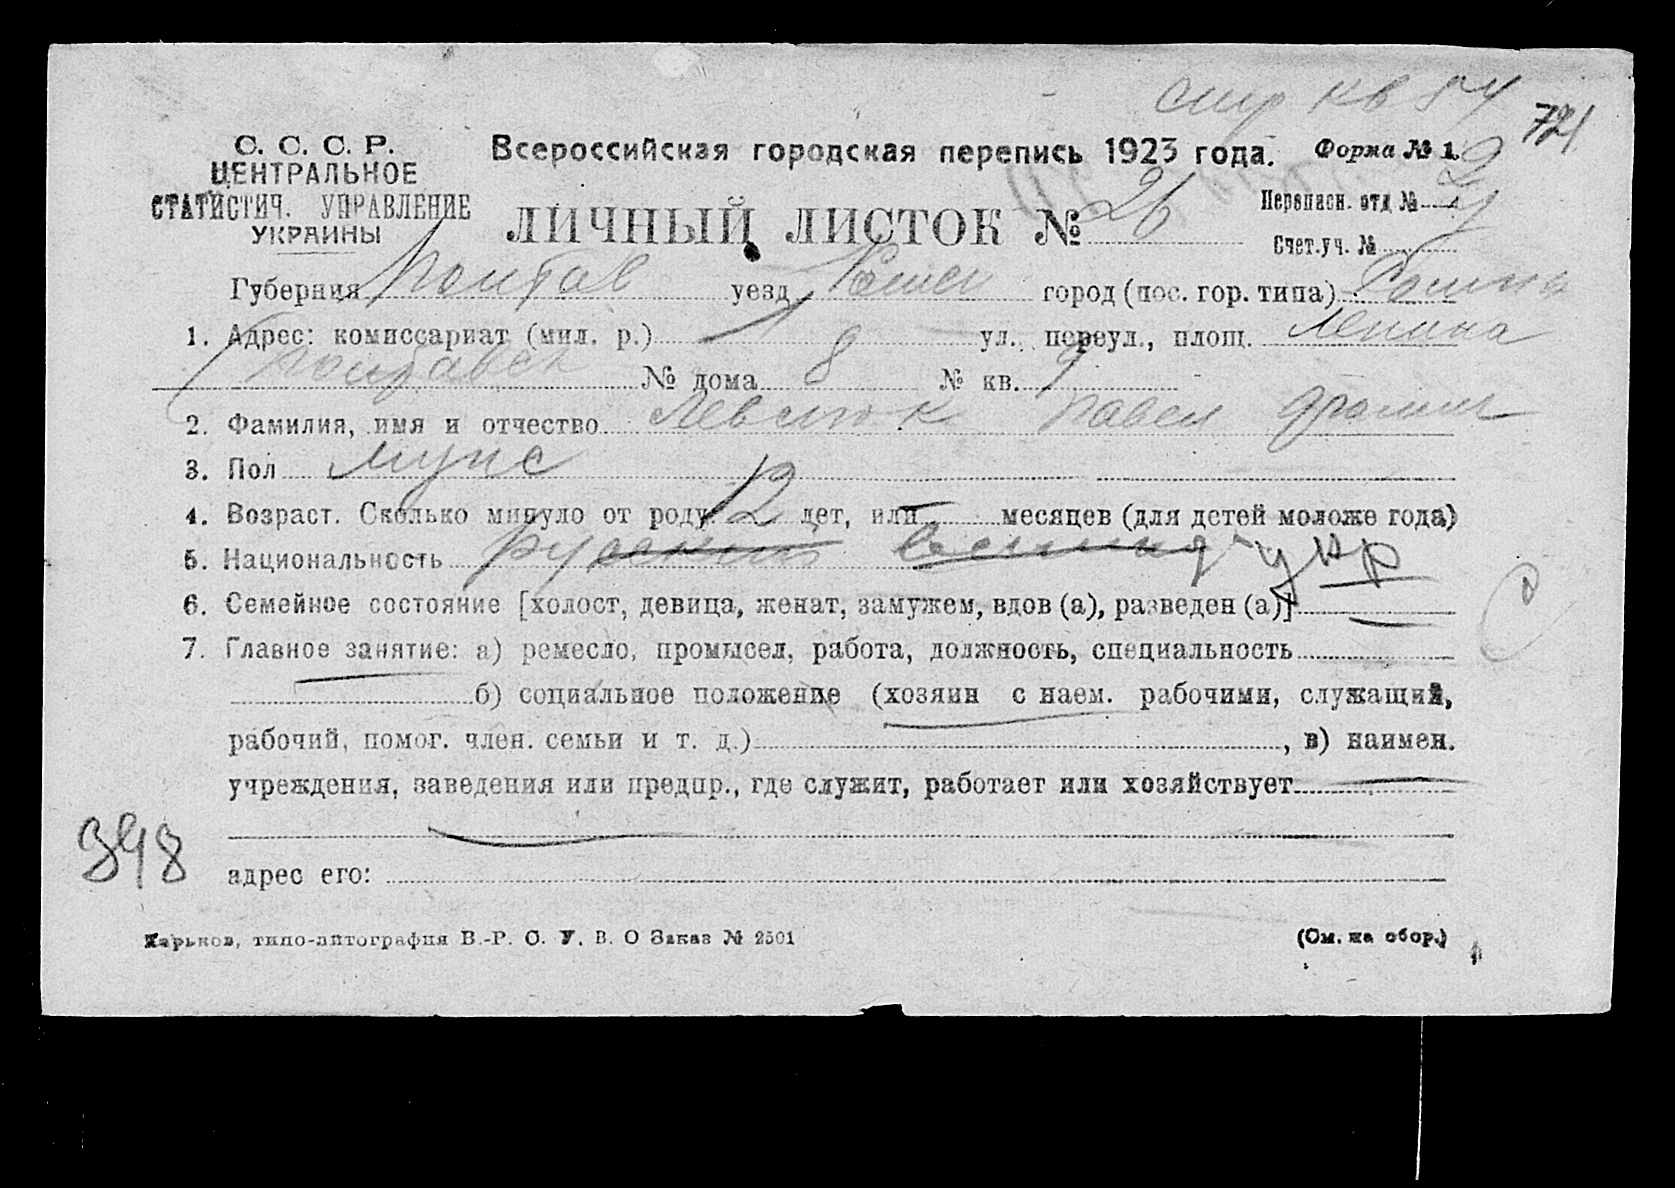 стр кв 84
721
С. С. С. Р.
ЦЕНТРАЛЬНОЕ
СТАТИСТИЧ. УПРАВЛЕНИЕ
УКРАИНЫ
Всероссийская городская перепись 1923 года. Форма № 1.
ЛИЧНЫЙ ЛИСТОК № 26
Переписн. отд №
Счет.уч. №
Губерния Полтав уезд город (пос. гор. типа)
1. Адрес: комиссариат (мил. р.) 1 ул., переул., площ. Ленина
Полтавск № дома 8 № кв. 9
2. Фамилия, имя и отчество Левсток Павел
3. Пол мужс
4. Возраст. Сколько минуло от роду 12 лет, или — месяцев (для детей моложе года)
5. Национальность русский укр
6. Семейное состояние [холост, девица, женат, замужем, вдов (а), разведен (а)]
7. Главное занятие: а) ремесло, промысел, работа, должность, специальность
б) социальное положение (хозяин с наем. рабочими, служащий,
рабочий, помог. член. семьи и т. д.) , в) наимен.
учреждения, заведения или предпр., где служит, работает или хозяйствует
398
адрес его:
Харьков, типо-литография В.-Р. С. У. В. О Заказ № 2501
(См. на обор.)